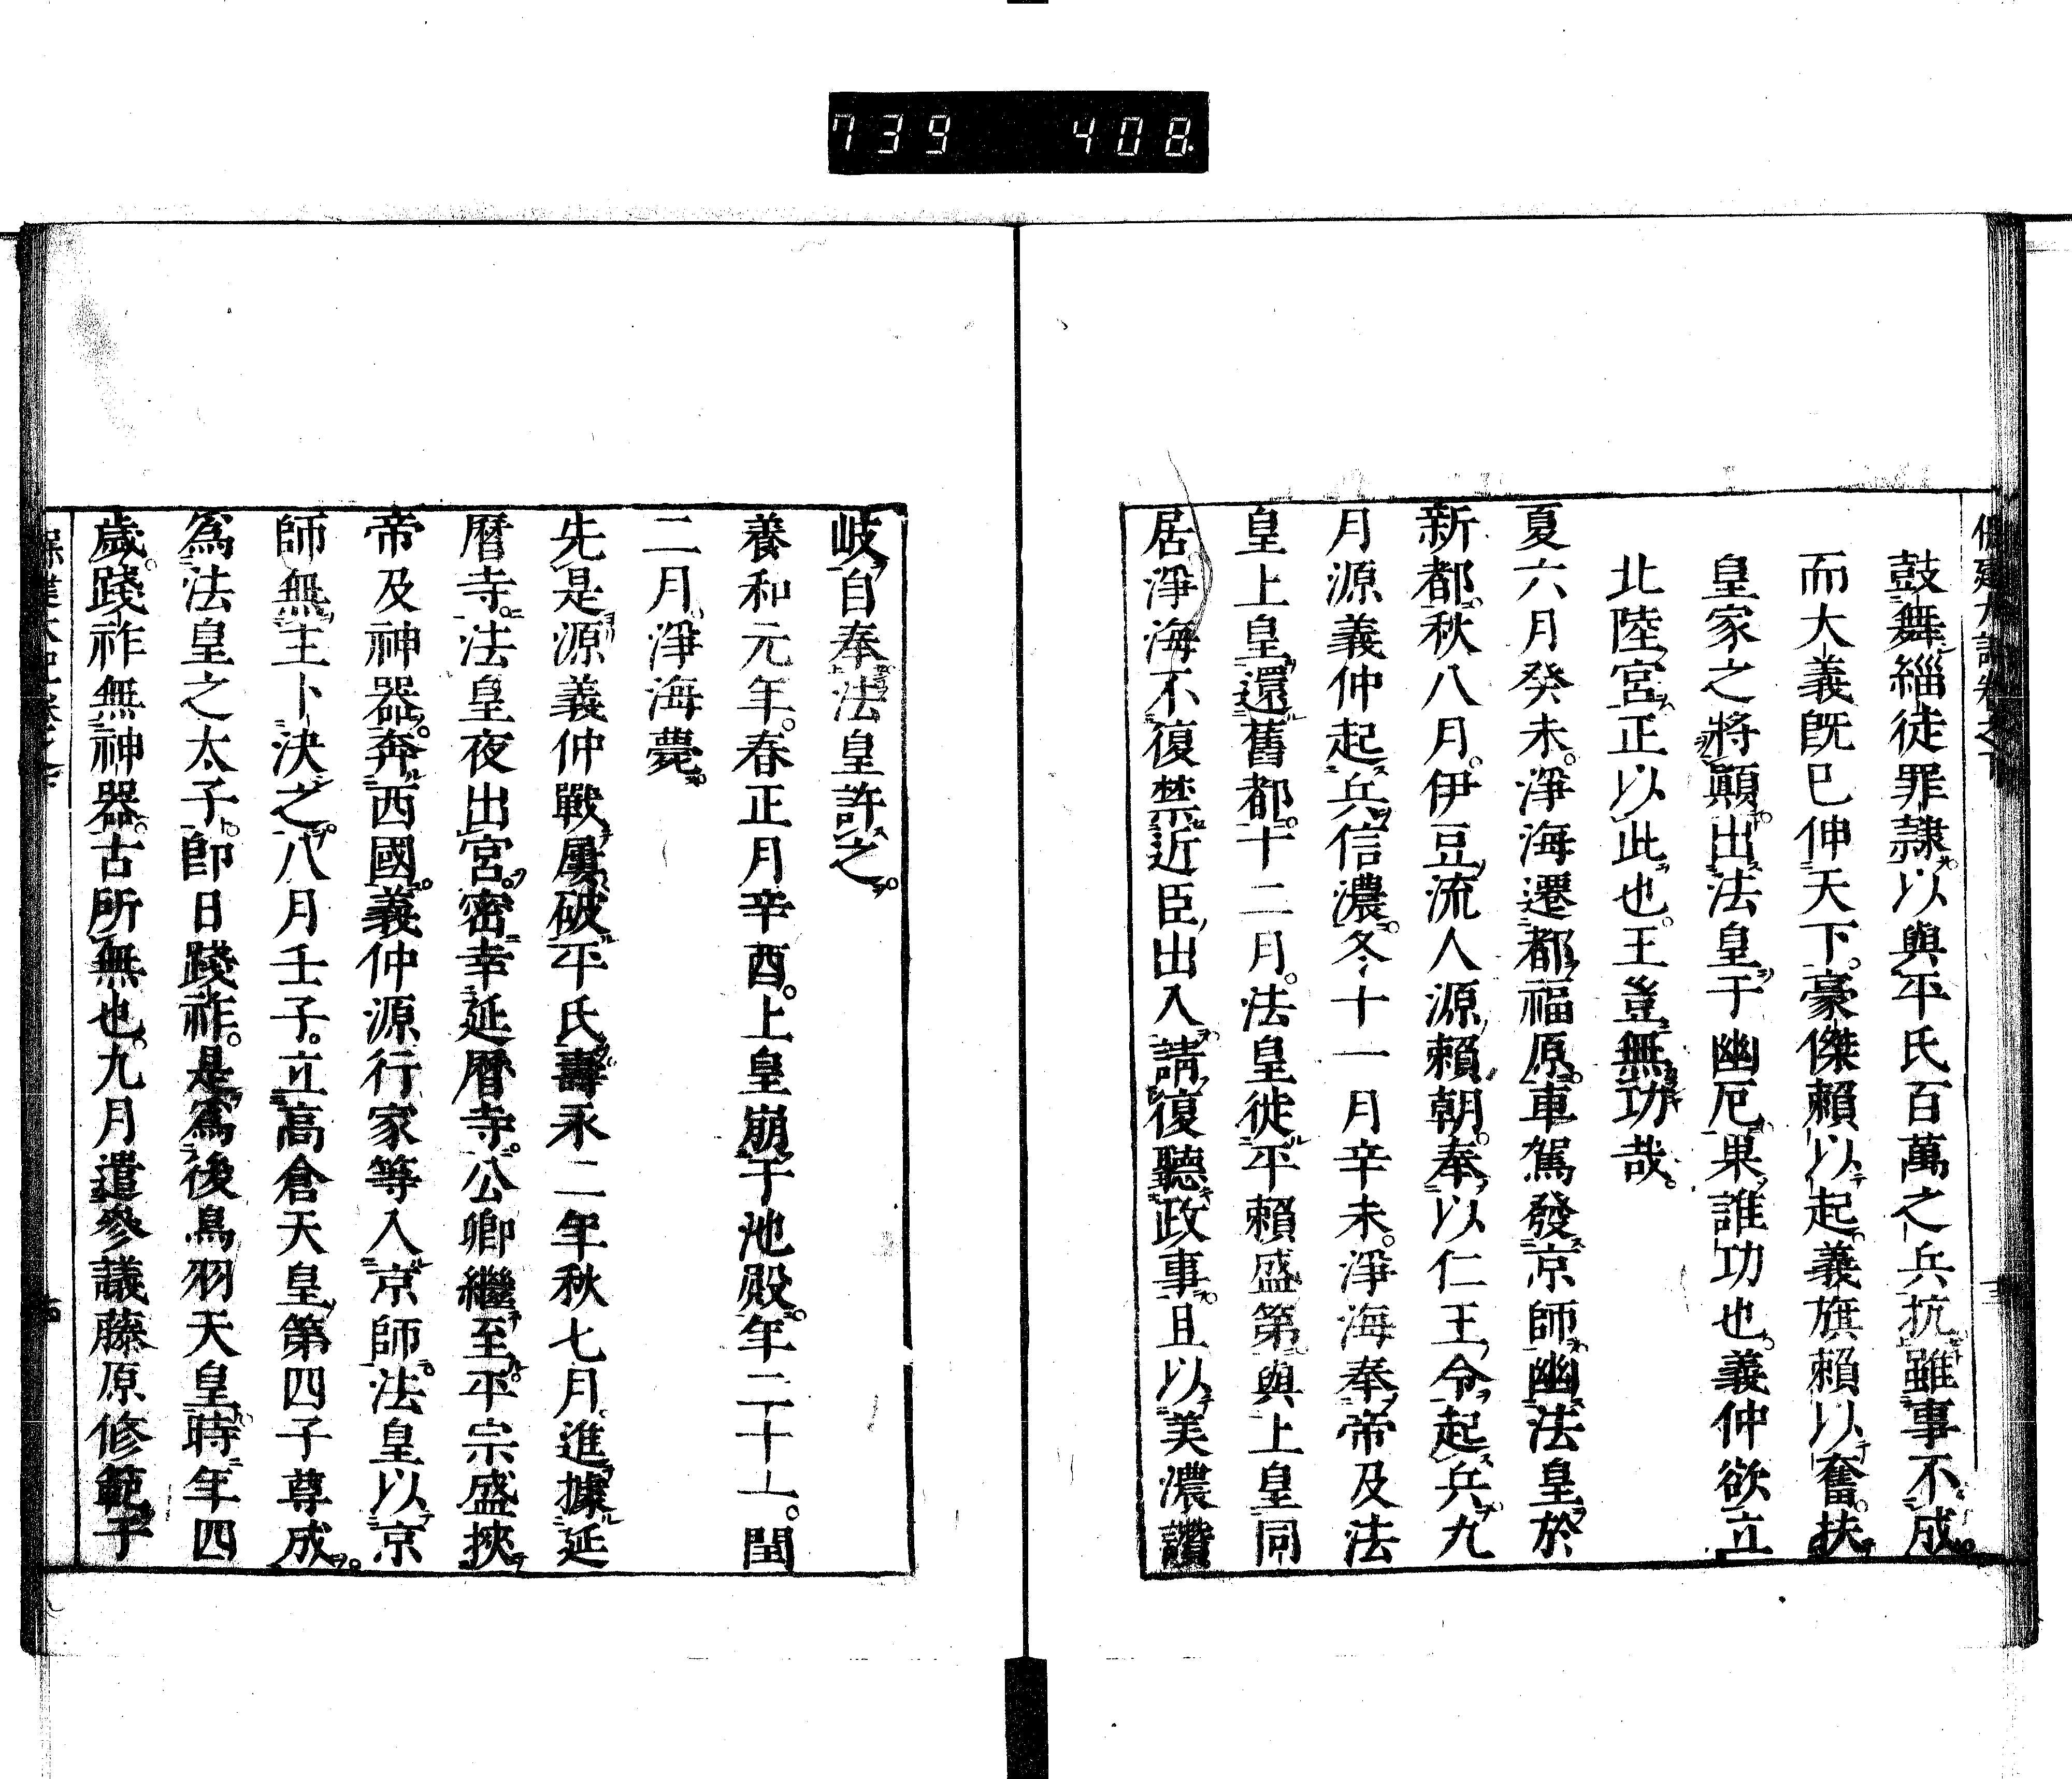 739 408
鼓舞緇徒罪隷以與平氏百萬之兵抗雖事不成
而大義既已伸天下。豪傑頼以起。義旗頼以奮。扶
皇家之將顚。出法皇于幽厄。果誰功也。義仲欲立
北陸宮。正以此也。王豈無功哉。
夏六月癸未。淨海遷都福原。車駕發京師。幽法皇於
新都。秋八月。伊豆流人源頼朝。奉以仁王令起兵。九
月源義仲起兵信濃。冬十一月辛未。淨海奉帝及法
皇上皇。還舊都。十二月。法皇徙平頼盛第。與上皇同
居。淨海不復禁近臣出入。請復聽政事。且以美濃讚
岐自奉法皇許之。
養和元年。春正月辛酉。上皇崩于池殿。年二十一。閏
二月。淨海薨。
先是源義仲戰屢破平氏。壽永二年秋七月。進據延
暦寺。法皇夜出宮。密幸延暦寺。公卿繼至。平宗盛挾
帝及神器。奔西國。義仲源行家等入京師。法皇以京
師無主卜決之。八月壬子。立高倉天皇第四子尊成。
爲法皇之太子。卽日踐祚。是爲後鳥羽天皇。時年四
歲。踐祚無神器。古所無也。九月遣參議藤原修範于